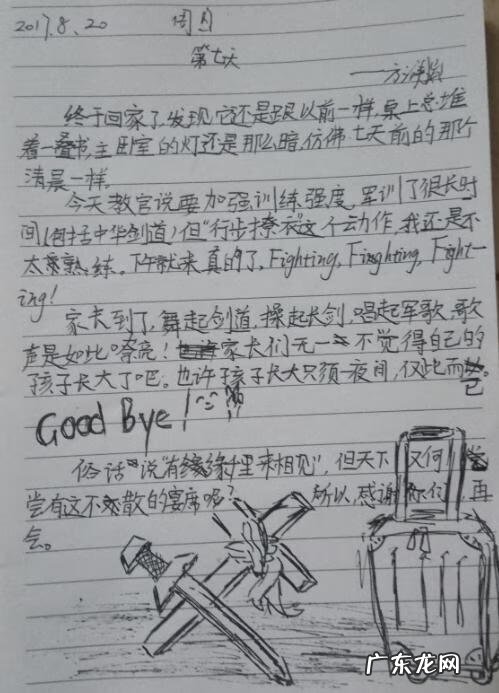 2017.8.20 周日
第七天
——方
终于回家了,发现它还是跟以前一样,桌上总堆
着一叠书,主卧室的灯还是那么暗,仿佛七天前的那个
清晨一样。
今天教官说要加强训练强度,军训了很长时
间(包括中华剑道),但“行步撩衣”这个动作,我还是不
太熟练。下午就来真的了,Fighting, Finghting, Fight-
ing!
家长到了,舞起剑道,操起长剑,唱起军歌,歌
声是如此嘹亮!家长们无一不觉得自己的
孩子长大了吧。也许孩子长大只须一夜间,仅此而已。
Good Bye!
俗话说“有缘千里来相见”,但天下又何
尝有这不散的宴席呢?所以,感谢你们,再
会。
广东龙网